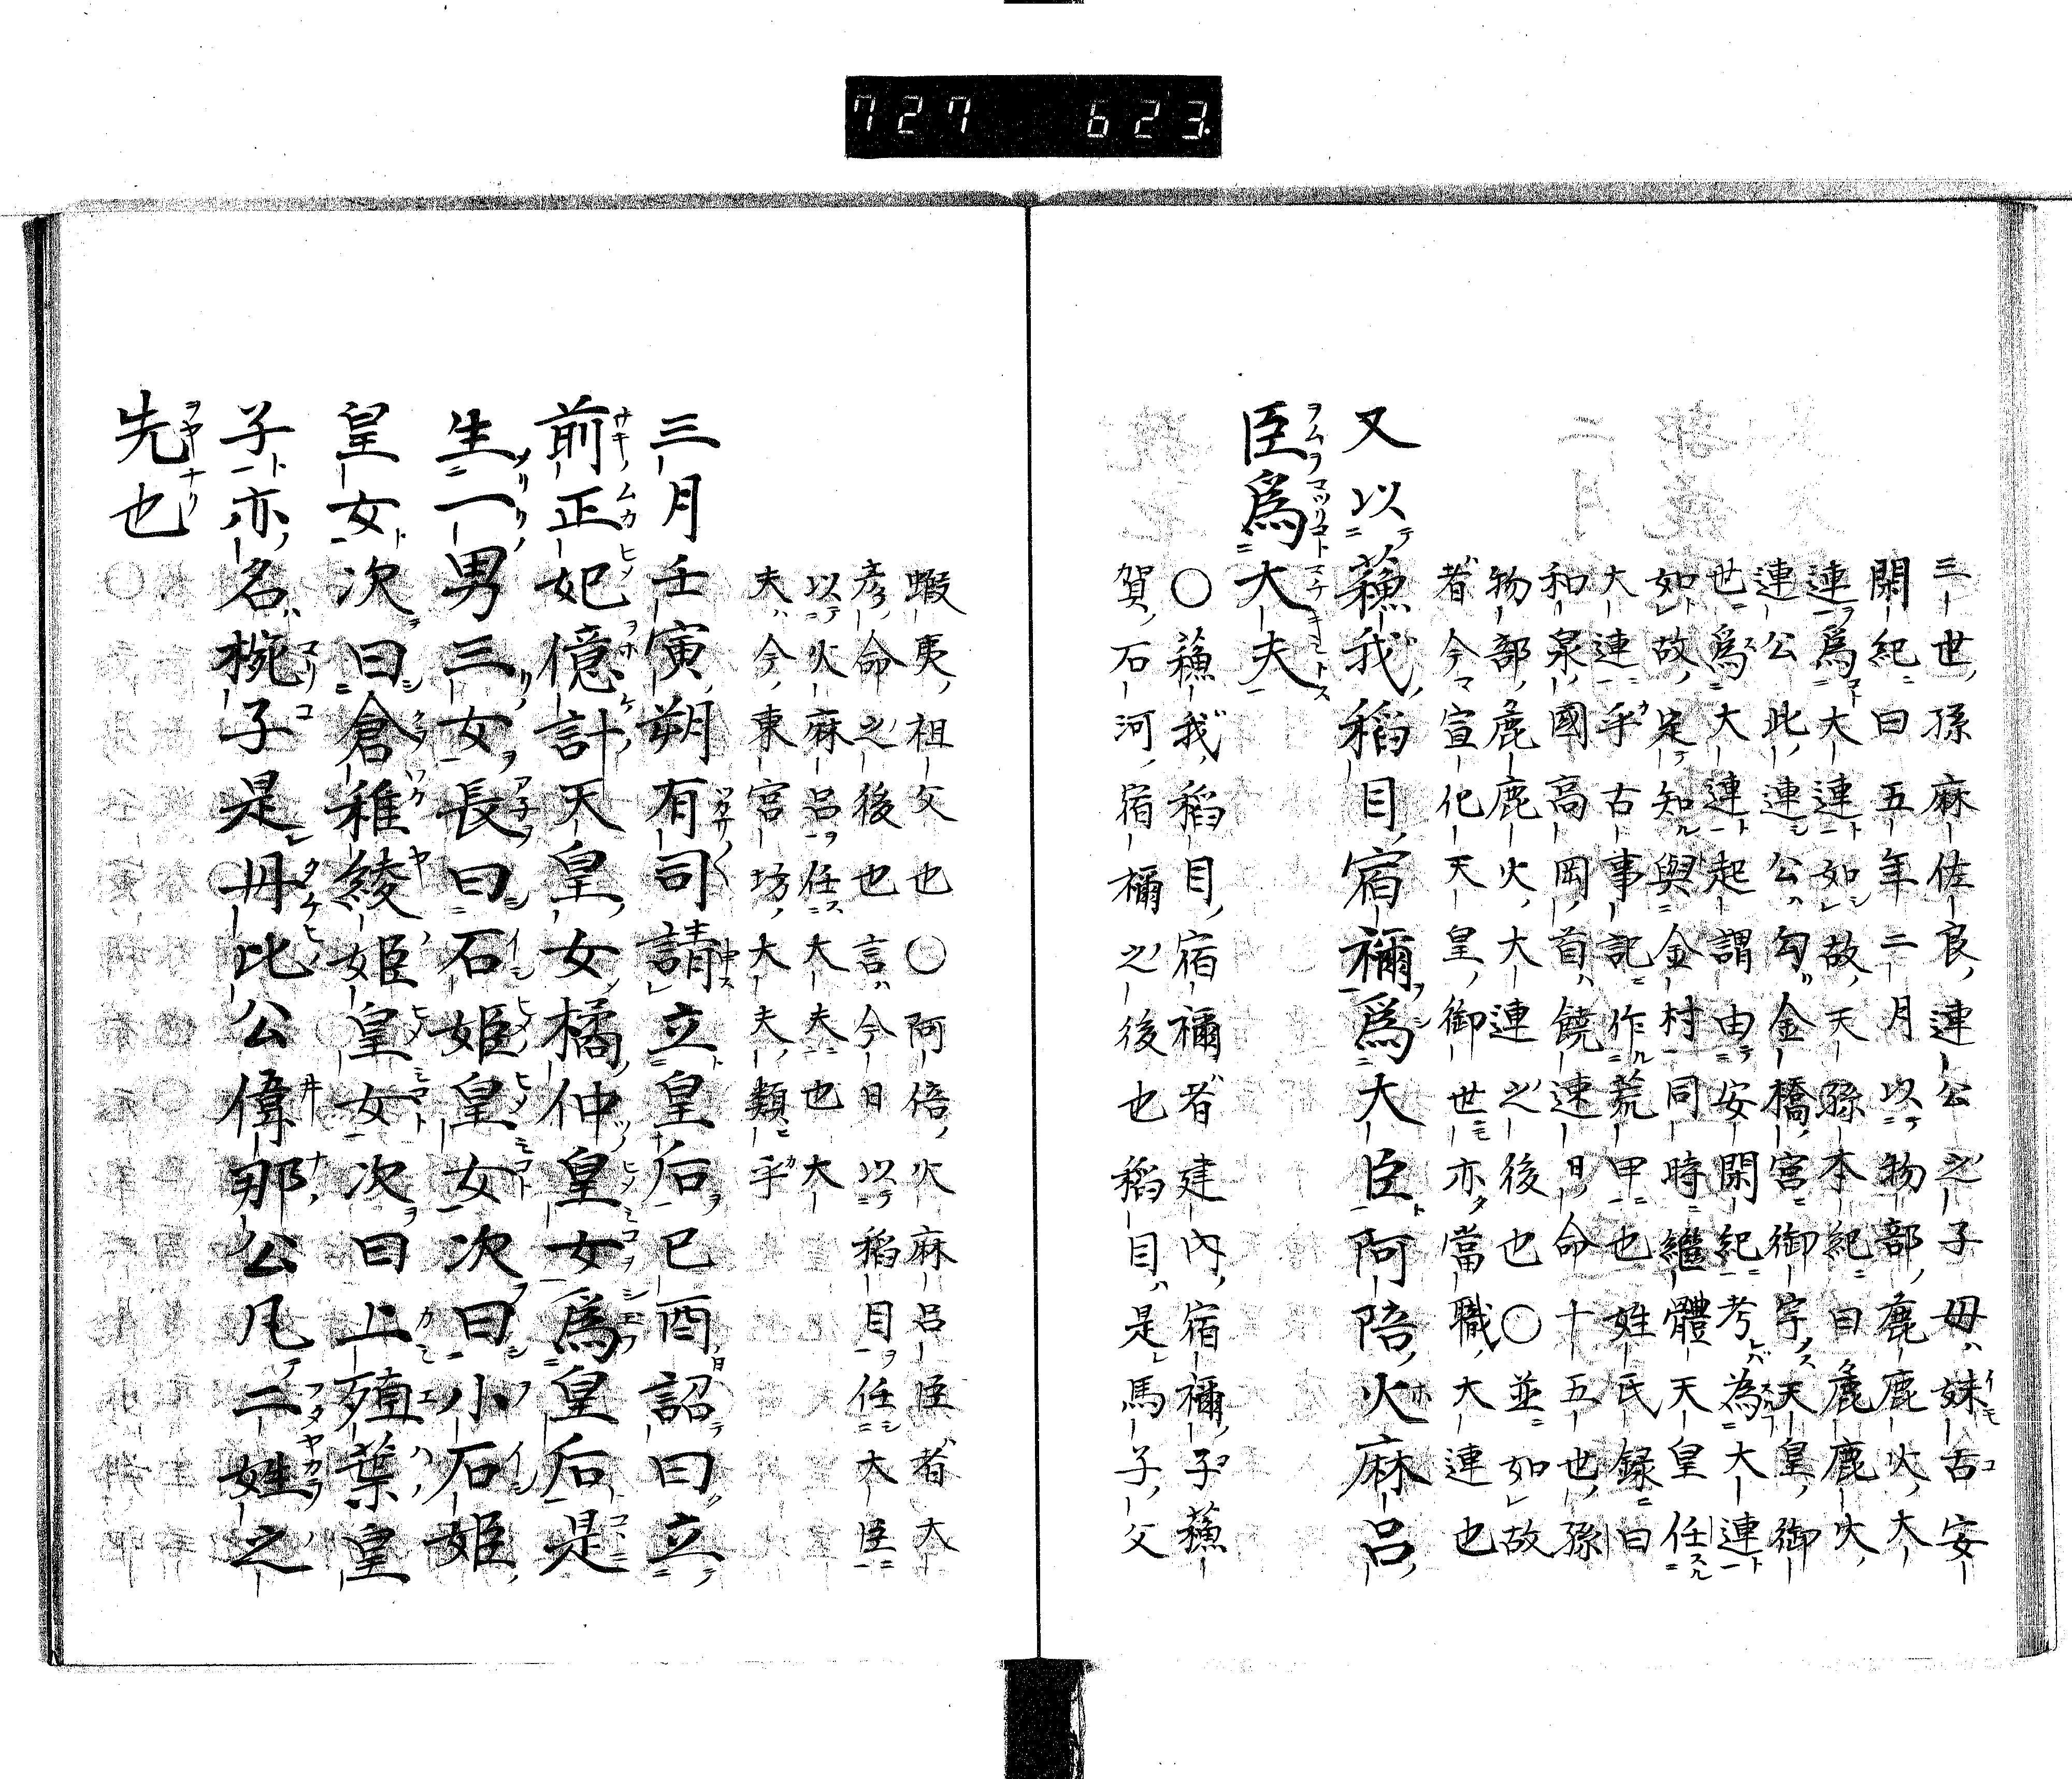 727 623
三世孫麻佐良連公之子母妹古安
閑紀曰五年二月以物部麁鹿火大
連爲大連如故天孫本紀曰麁鹿火
連公此連公勾金橋宮御宇天皇御
世爲大連起謂由安閑紀考為大連
如故定知與金村同時繼體天皇任
大連乎古事記作荒甲也姓氏録曰
和泉國高岡首饒速日命十五世孫
物部麁鹿火大連之後也〇並如故
者今宣化天皇御世亦當職大連也
又以蘓我稻目宿禰爲大臣阿陪火麻呂
臣爲大夫
〇蘓我稻目宿禰者建內宿禰子蘓
賀石河宿禰之後也稻目是馬子父
蝦夷祖父也〇阿倍火麻呂臣者大
彦命之後也言今日以稻目任大臣
以火麻呂任大夫也大
夫今東宮坊大夫類乎
三月壬寅朔有司請立皇后已酉詔曰立
前正妃億計天皇女橘仲皇女爲皇后是
生一男三女長曰石姫皇女次曰小石姫
皇女次曰倉稚綾姫皇女次曰上殖葉皇
子亦名椀子是丹比公偉那公凡二姓之
先也